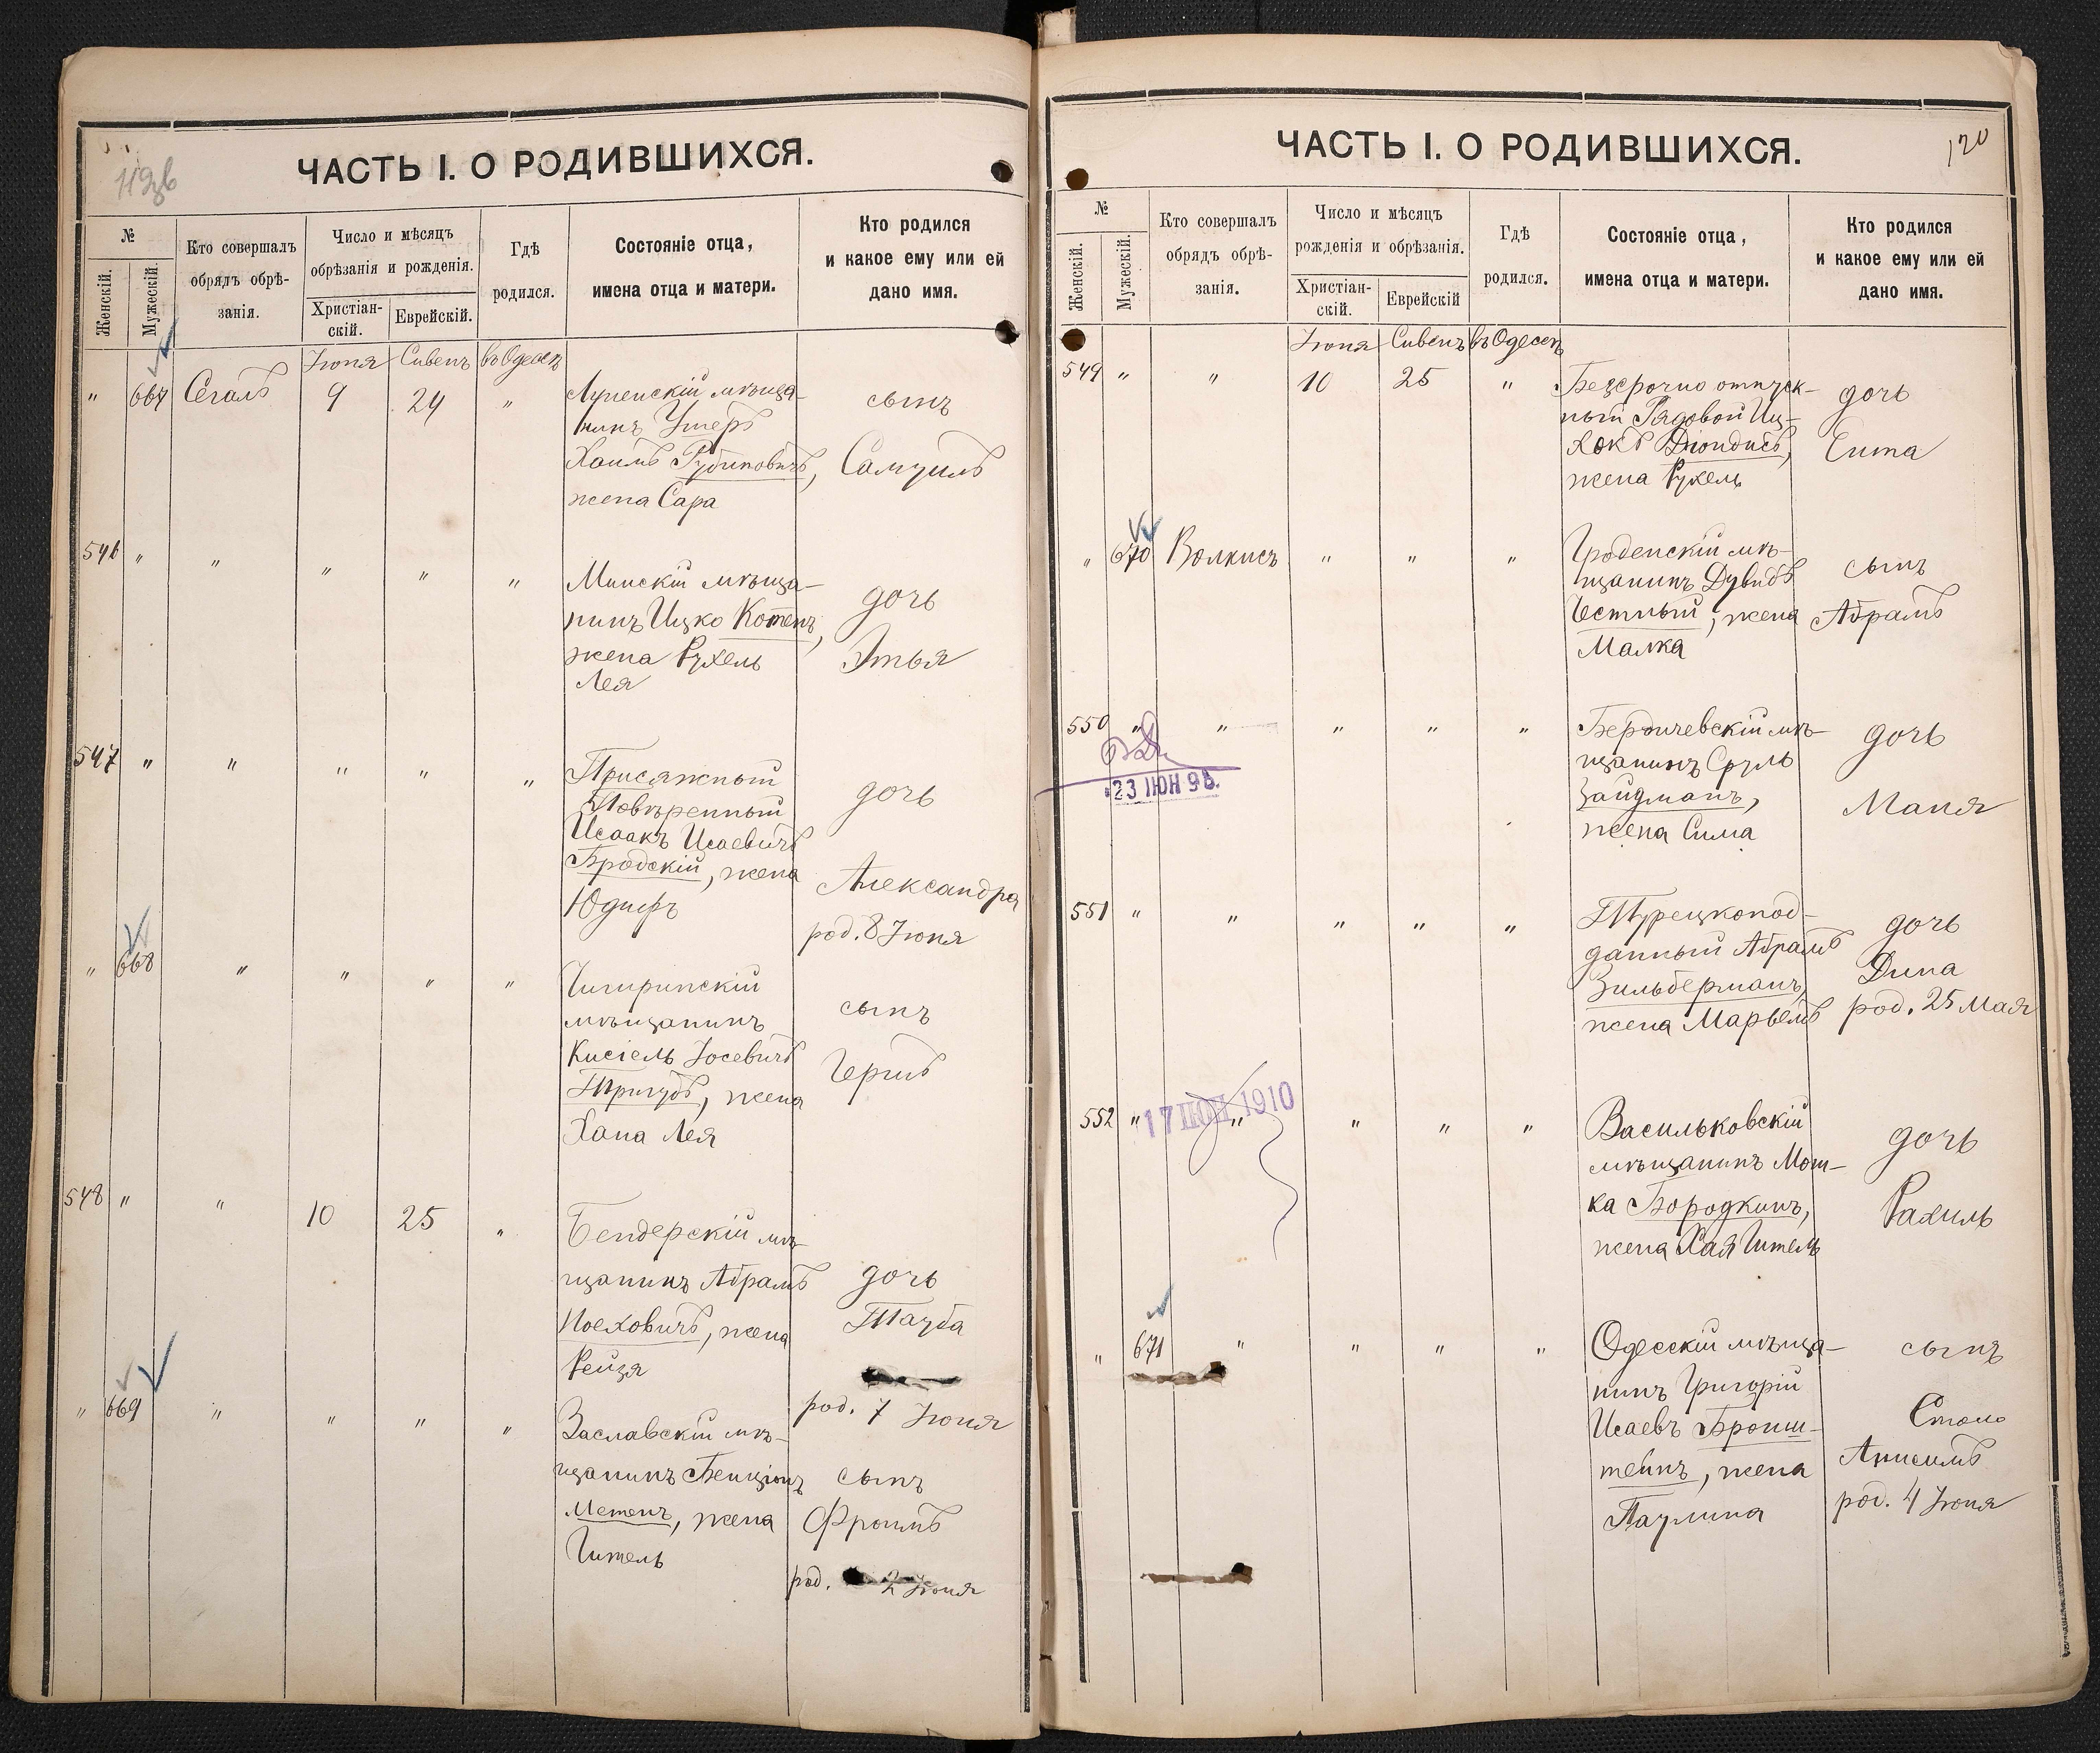 119зв
ЧАСТЬ I. О РОДИВШИХСЯ.
№
Женскій.
Мужескій.
Кто совершалъ
обрядъ обрѣ-
занія.
Число и мѣсяцъ
обрѣзанія и рожденія.
Христіан-
скій.
Еврейскій.
Гдѣ
родился.
Состояніе отца,
имена отца и матери.
Кто родился
и какое ему или ей
дано имя.
Іюня Сивенъ въ Одессѣ
" 667 Сегалъ 9 24 "
мѣща-
нинъ Ушеръ
Хаимъ Рубиновичъ,
жена Сара
сынъ
Самуилъ
546 " " " " "
Минскій мѣща-
нинъ Ицко Котенъ,
жена Рухель
Лея
дочь
Этья
547 " " " " "
Присяжный
Повѣренный
Исаакъ Исаевичъ
Бродскій, жена
Юдифъ
дочь
Александра
род. 8 Іюня
" 668 " " " "
Чигиринскій
мѣщанинъ
Кисіель Іосевичъ
Тригубъ, жена
Хана Лея
сынъ
Гершъ
548 " " 10 25 "
Бендерскій мѣ-
щанинъ Абрамъ
Иоеховичъ, жена
Рейзя
дочь
Тауба
род. 7 Іюня
" 669 " " " "
Заславскій мѣ-
щанинъ Бенціонъ
Метенъ, жена
Гитель
сынъ
Фроимъ
род. 2 Іюня
120
ЧАСТЬ I. О РОДИВШИХСЯ.
№
Женскій.
Мужескій.
Кто совершалъ
обрядъ обрѣ-
занія.
Число и мѣсяцъ
рожденія и обрѣзанія.
Христіан-
скій.
Еврейскій
Гдѣ
родился.
Состояніе отца,
имена отца и матери.
Кто родился
и какое ему или ей
дано имя.
Іюня Сивенъ въ Одессѣ
549 " " 10 25 "
Безсрочно отпуск-
ный Рядовой Иц-
хокъ Діондисъ,
жена Рухель
дочь
Ента
" 670 Волкисъ " " "
Гроденскій мѣ-
щанинъ Дувидъ
Честный, жена
Малка
сынъ
Абрамъ
550 " " " " "
23 ІЮН 98.
Бердичевскій мѣ-
щанинъ Сруль
Зайдманъ,
жена Сима
дочь
Маня
551 " " " " "
Турецкопод-
данный Абрамъ
Зильберманъ,
жена Марьемъ
дочь
Дина
род. 25 Мая
552 " " " " "
17 ІЮН 1910
Васильковскій
мѣщанинъ Мош-
ка Бородкинъ,
жена Хая Гитель
дочь
Рахиль
" 671 " " " "
Одесскій мѣща-
нинъ Григорій
Исаевъ Бронш-
тейнъ, жена
Паулина
сынъ
Анисимъ
род. 4 Іюня